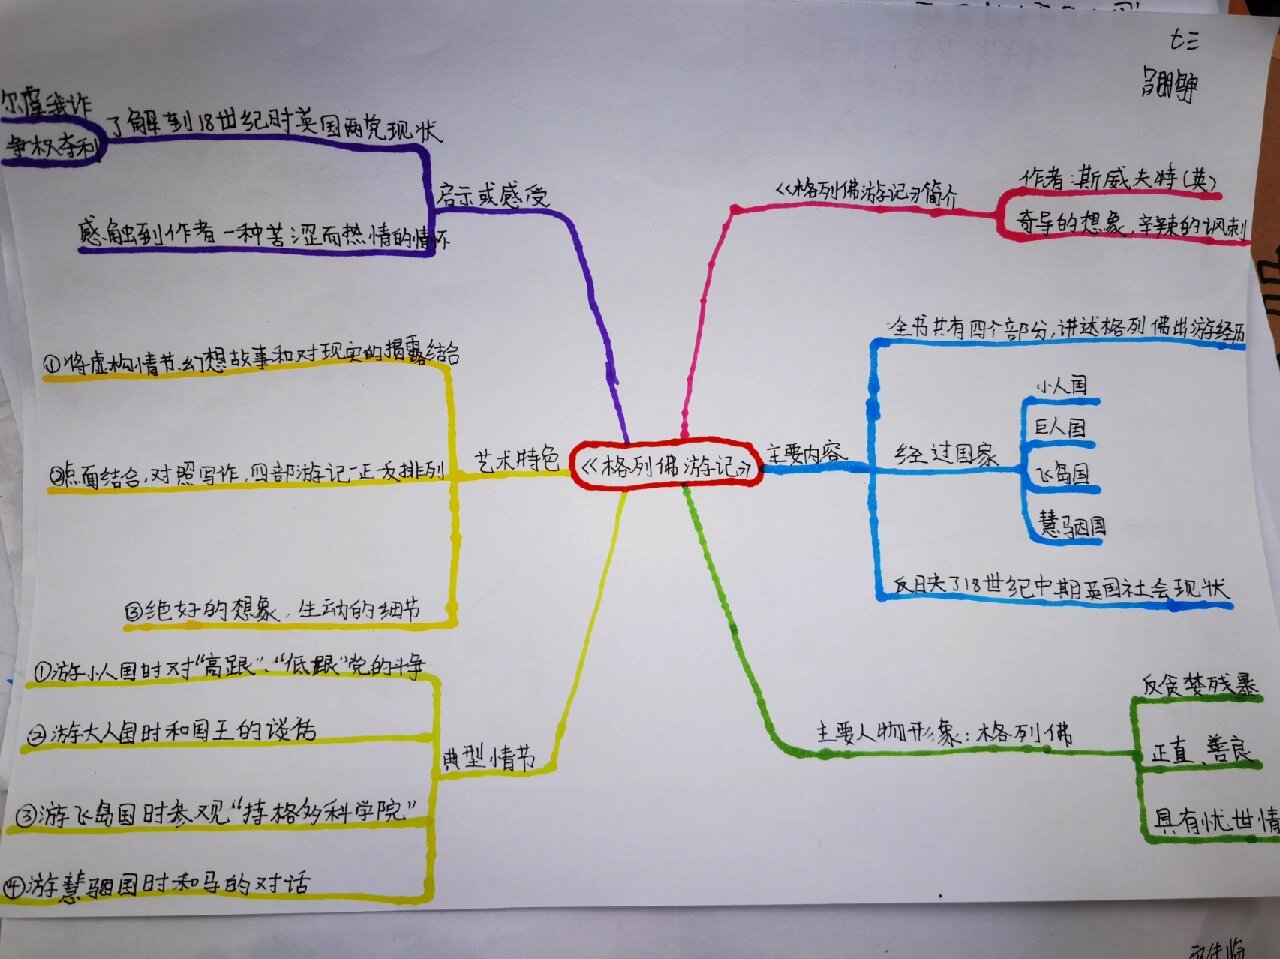 七三
《格列佛游记》
《格列佛游记》简介
作者:斯威夫特(英)
奇导的想象,辛辣的讽刺
主要内容
全书共有四个部分,讲述格列佛出游经历
经过国家
小人国
巨人国
飞岛国
慧骃国
反映了18世纪中期英国社会现状
主要人物形象:格列佛
反贪婪残暴
正直、善良
具有忧世情
启示或感受
了解到18世纪时英国两党现状
尔虞我诈
争权夺利
感触到作者一种苦涩而热情的情怀
艺术特色
①将虚构情节、幻想故事和对现实的揭露结合
②点面结合,对照写作,四部游记一正反排列
③绝好的想象,生动的细节
典型情节
①游小人国时对“高跟”、“低跟”党的斗争
②游大人国时和国王的谈话
③游飞岛国时参观“持格多科学院”
④游慧骃国时和马的对话